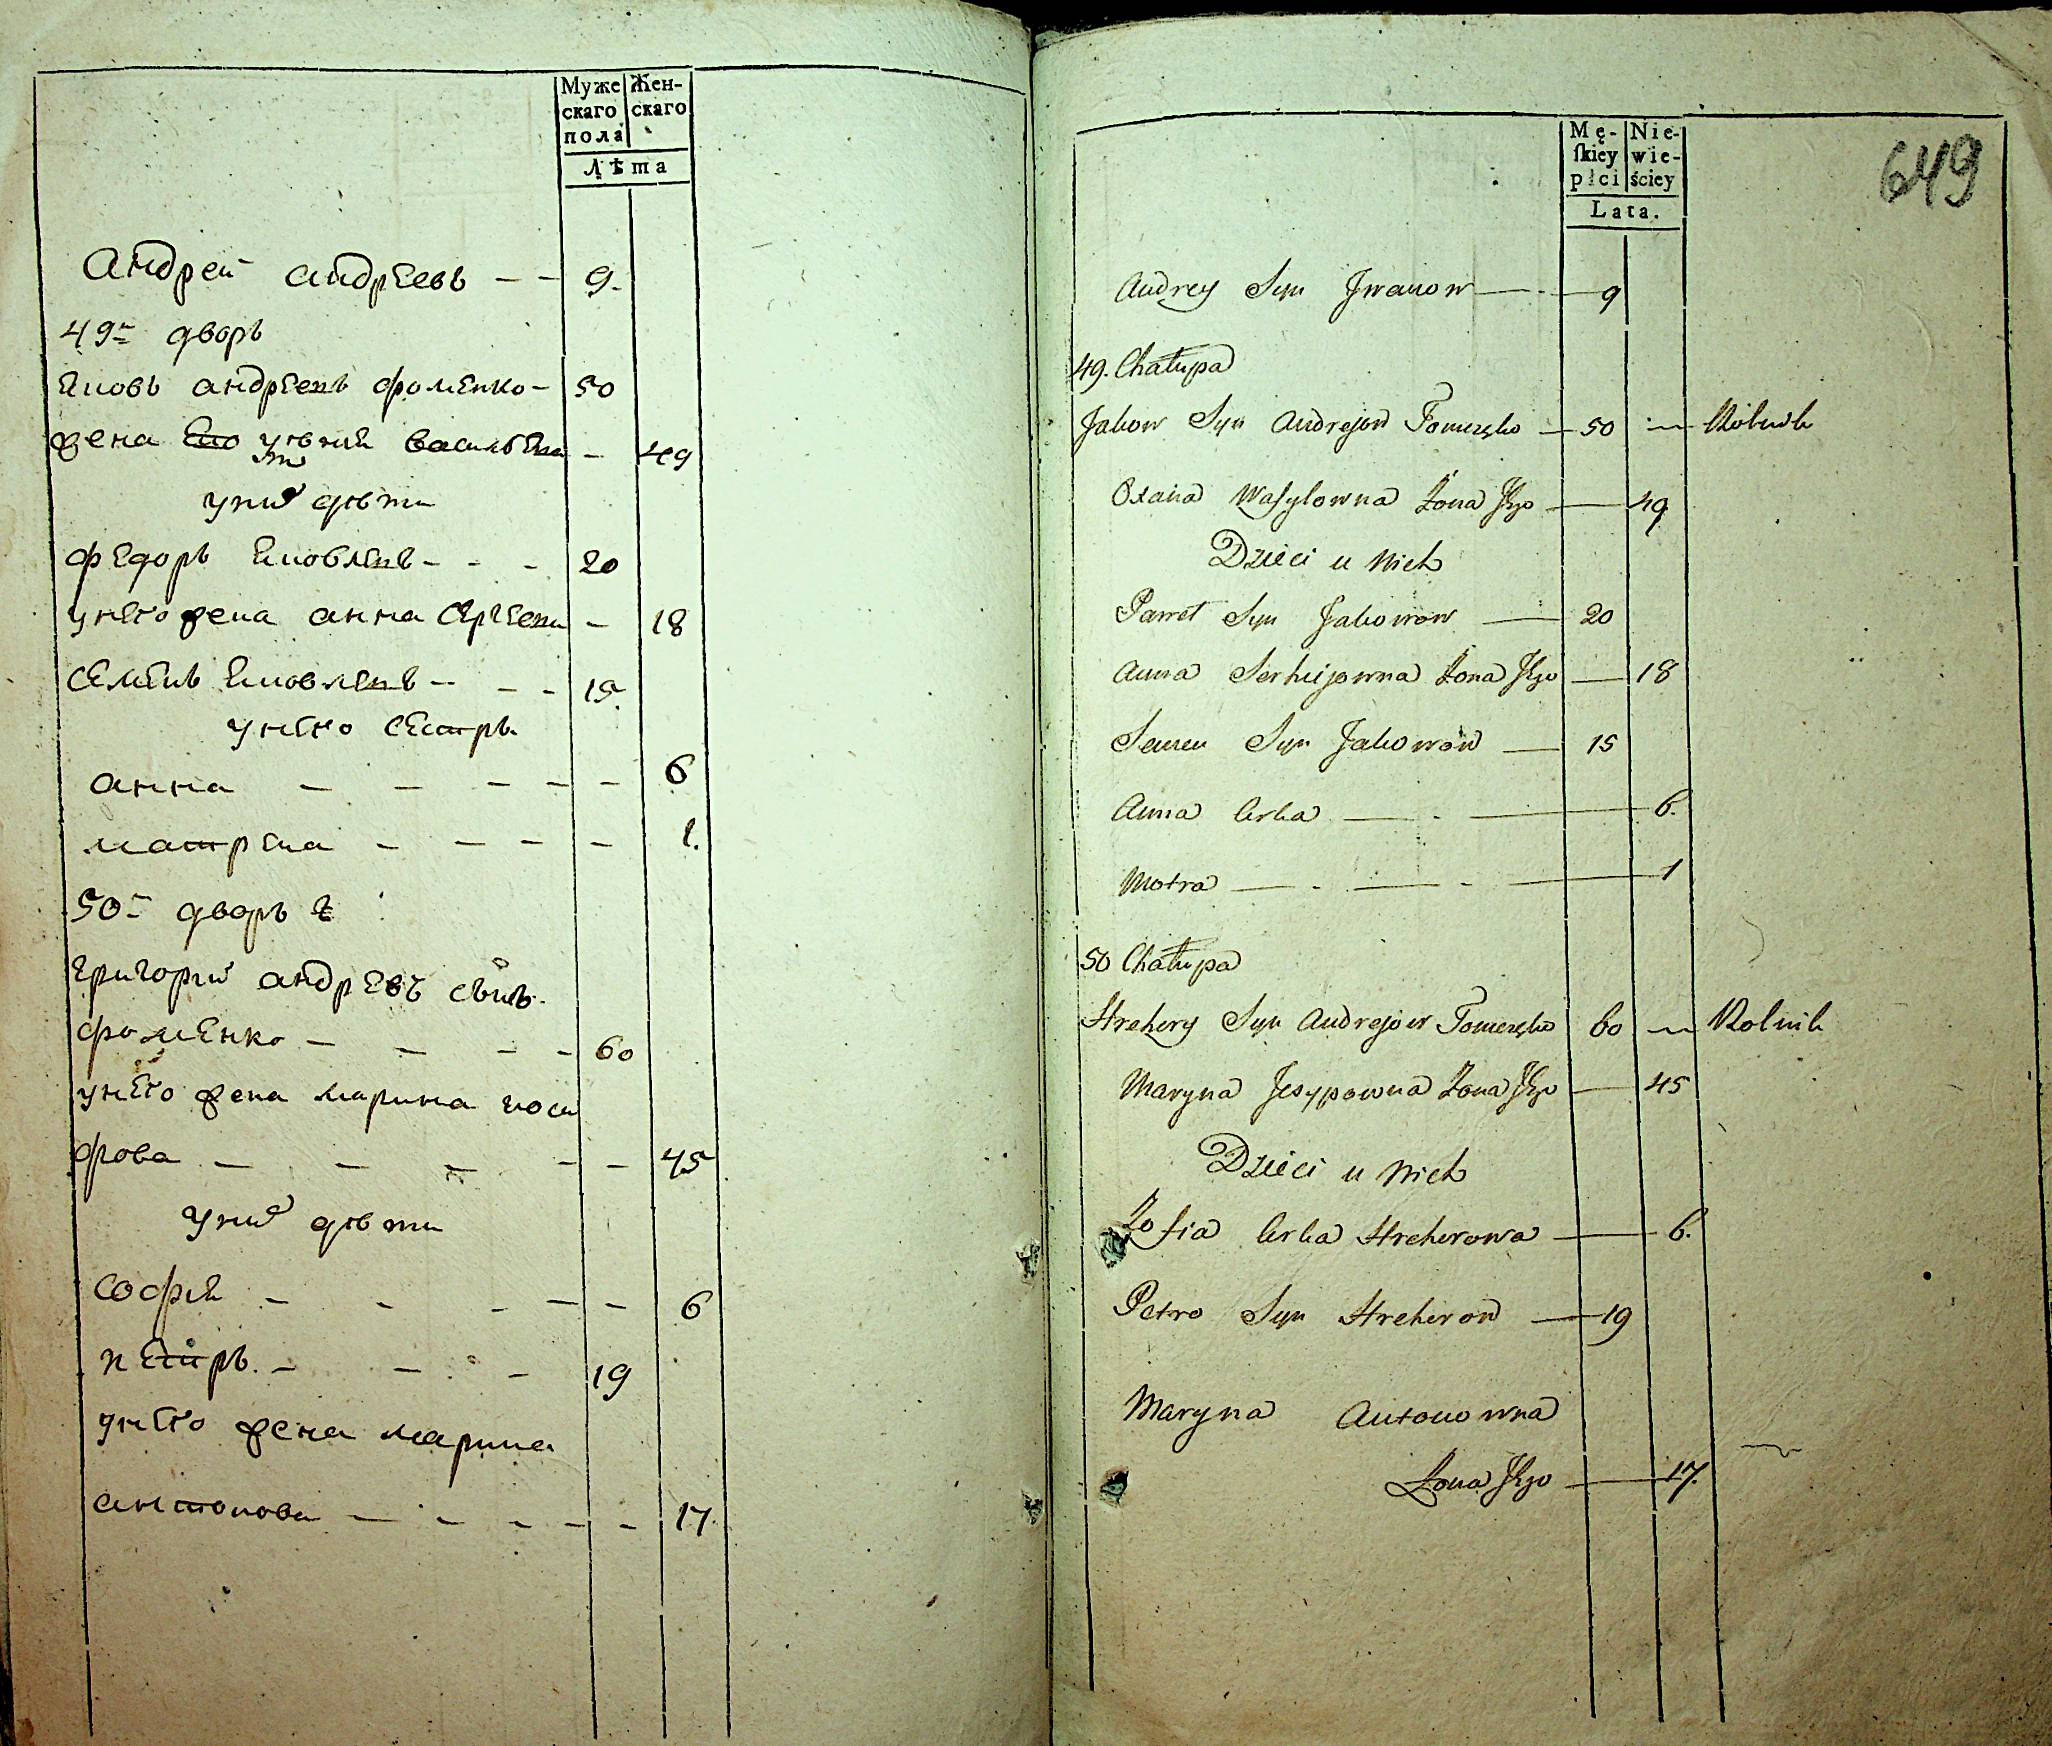 Муже
скаго
пола
Жен-
скаго
Лѣта
Андрей андреевъ — — 9.
49й дворъ
Яковъ андреевъ фоменко — 50
жена васильева — 49
у них дѣти
федоръ Яковлевъ - - - 20
у него жена анна Сергеева — 18
Семенъ Яковлевъ - - - 15.
у него сестръ
анна — — — — — 6
матрена — — — — 1.
50й дворъ
григорий андреевъ сынъ
фоменко — — — — 60
у него жена марина иоси
фова — — — — — 45
у них дѣти
София — - - — — 6
петръ. — — — 19
у него жена марина
антонова — - - — — 17
649
Mę-
skiey
płci
Nie-
wie-
ściey
Lata.
Andrey Syn Jwanow — 9
49. Chałupa
Jakow Syn Andrejow Fomenko — 50 — Rolnik
Oxana Wasylowna Żona Jego — 49
Dzieci u Nich
Paweł Syn Jakowow — 20
Anna Serhijowna Żona Jego — 18
Semen Syn Jakowow — 15
Anna Crka — 6.
Motra — 1
50 Chałupa
Hrehory Syn Andrejow Fomenko 60 — Rolnik
Maryna Jesypowna Żona Jego — 45
Dzieci u Nich
Zofia Crka Hrehorowa — 6.
Petro Syn Hrehorow — 19
Maryna Antonowna
Żona Jego — 17.